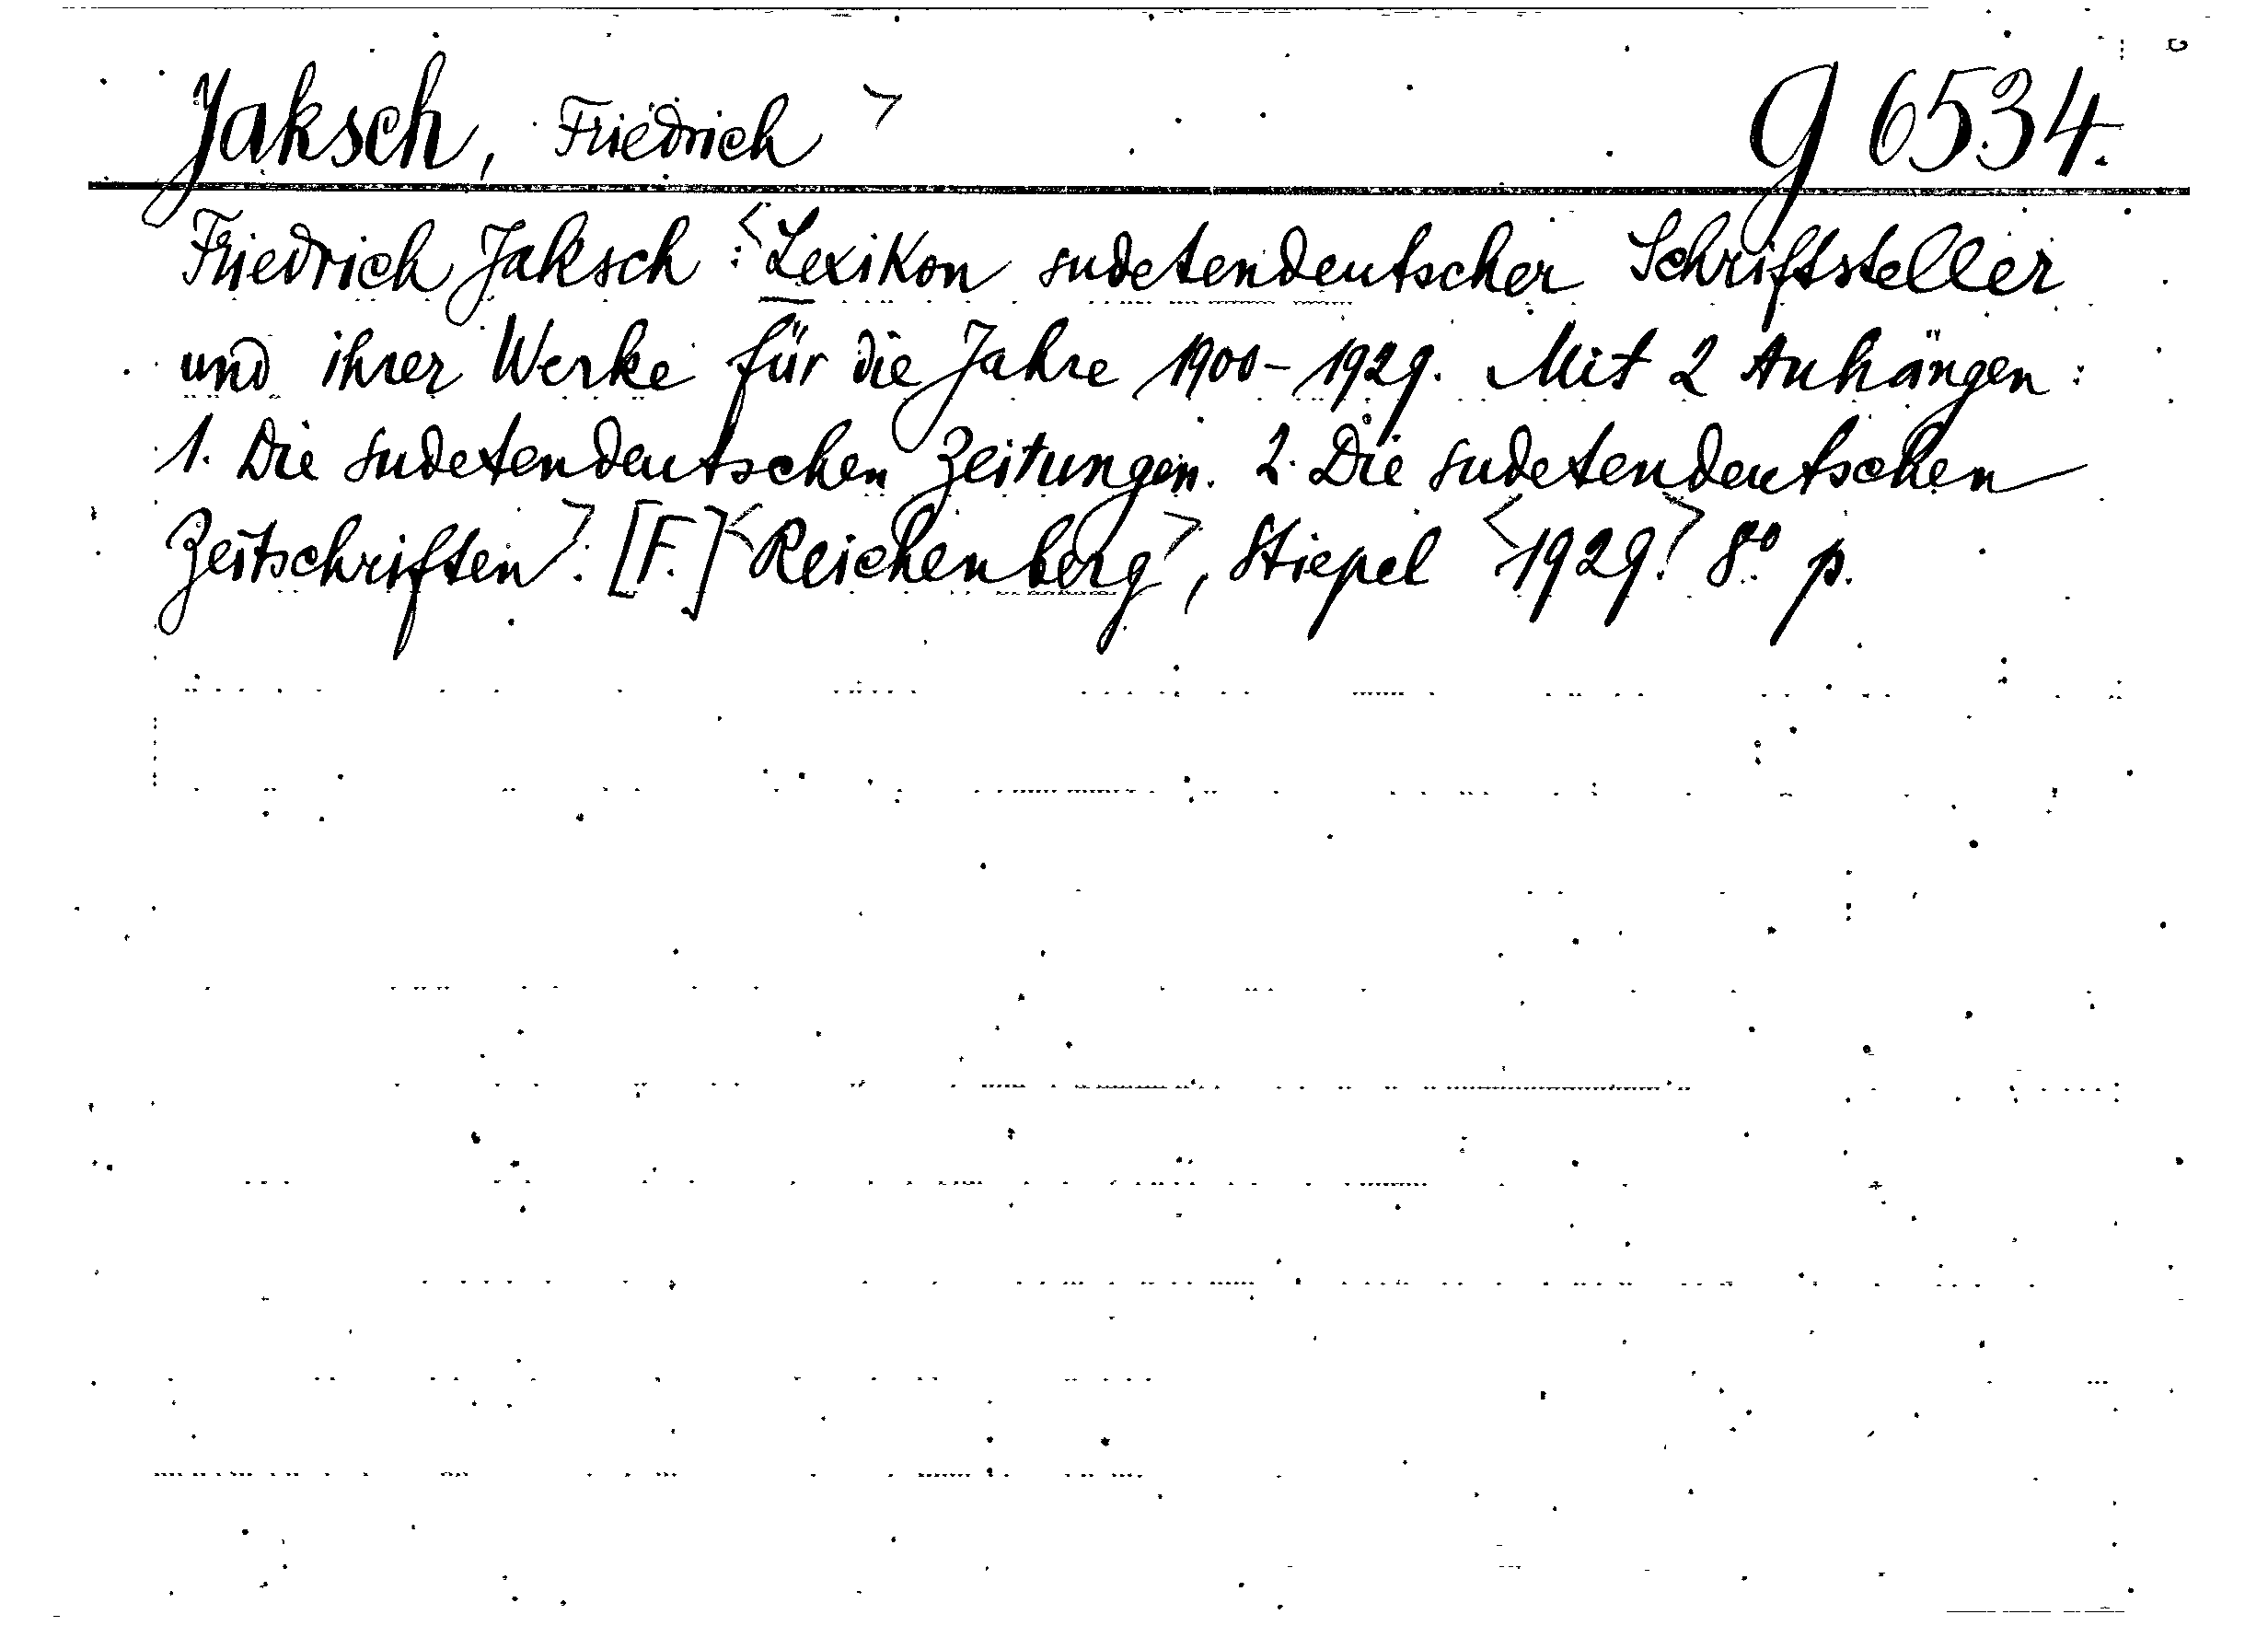 Jaksch, Friedrich > g 6534.
Friedrich Jaksch : <Lexikon sudetendeutscher Schriftsteller
und ihrer Werke für die Jahre 1900-1929. Mit 2 Anhängen:
1. Die sudetendeutschen Zeitungen. 2. Die sudetendeutschen
Zeitschriften>. [F.] <Reichenberg>, Stiepel <1929.> 8° p.